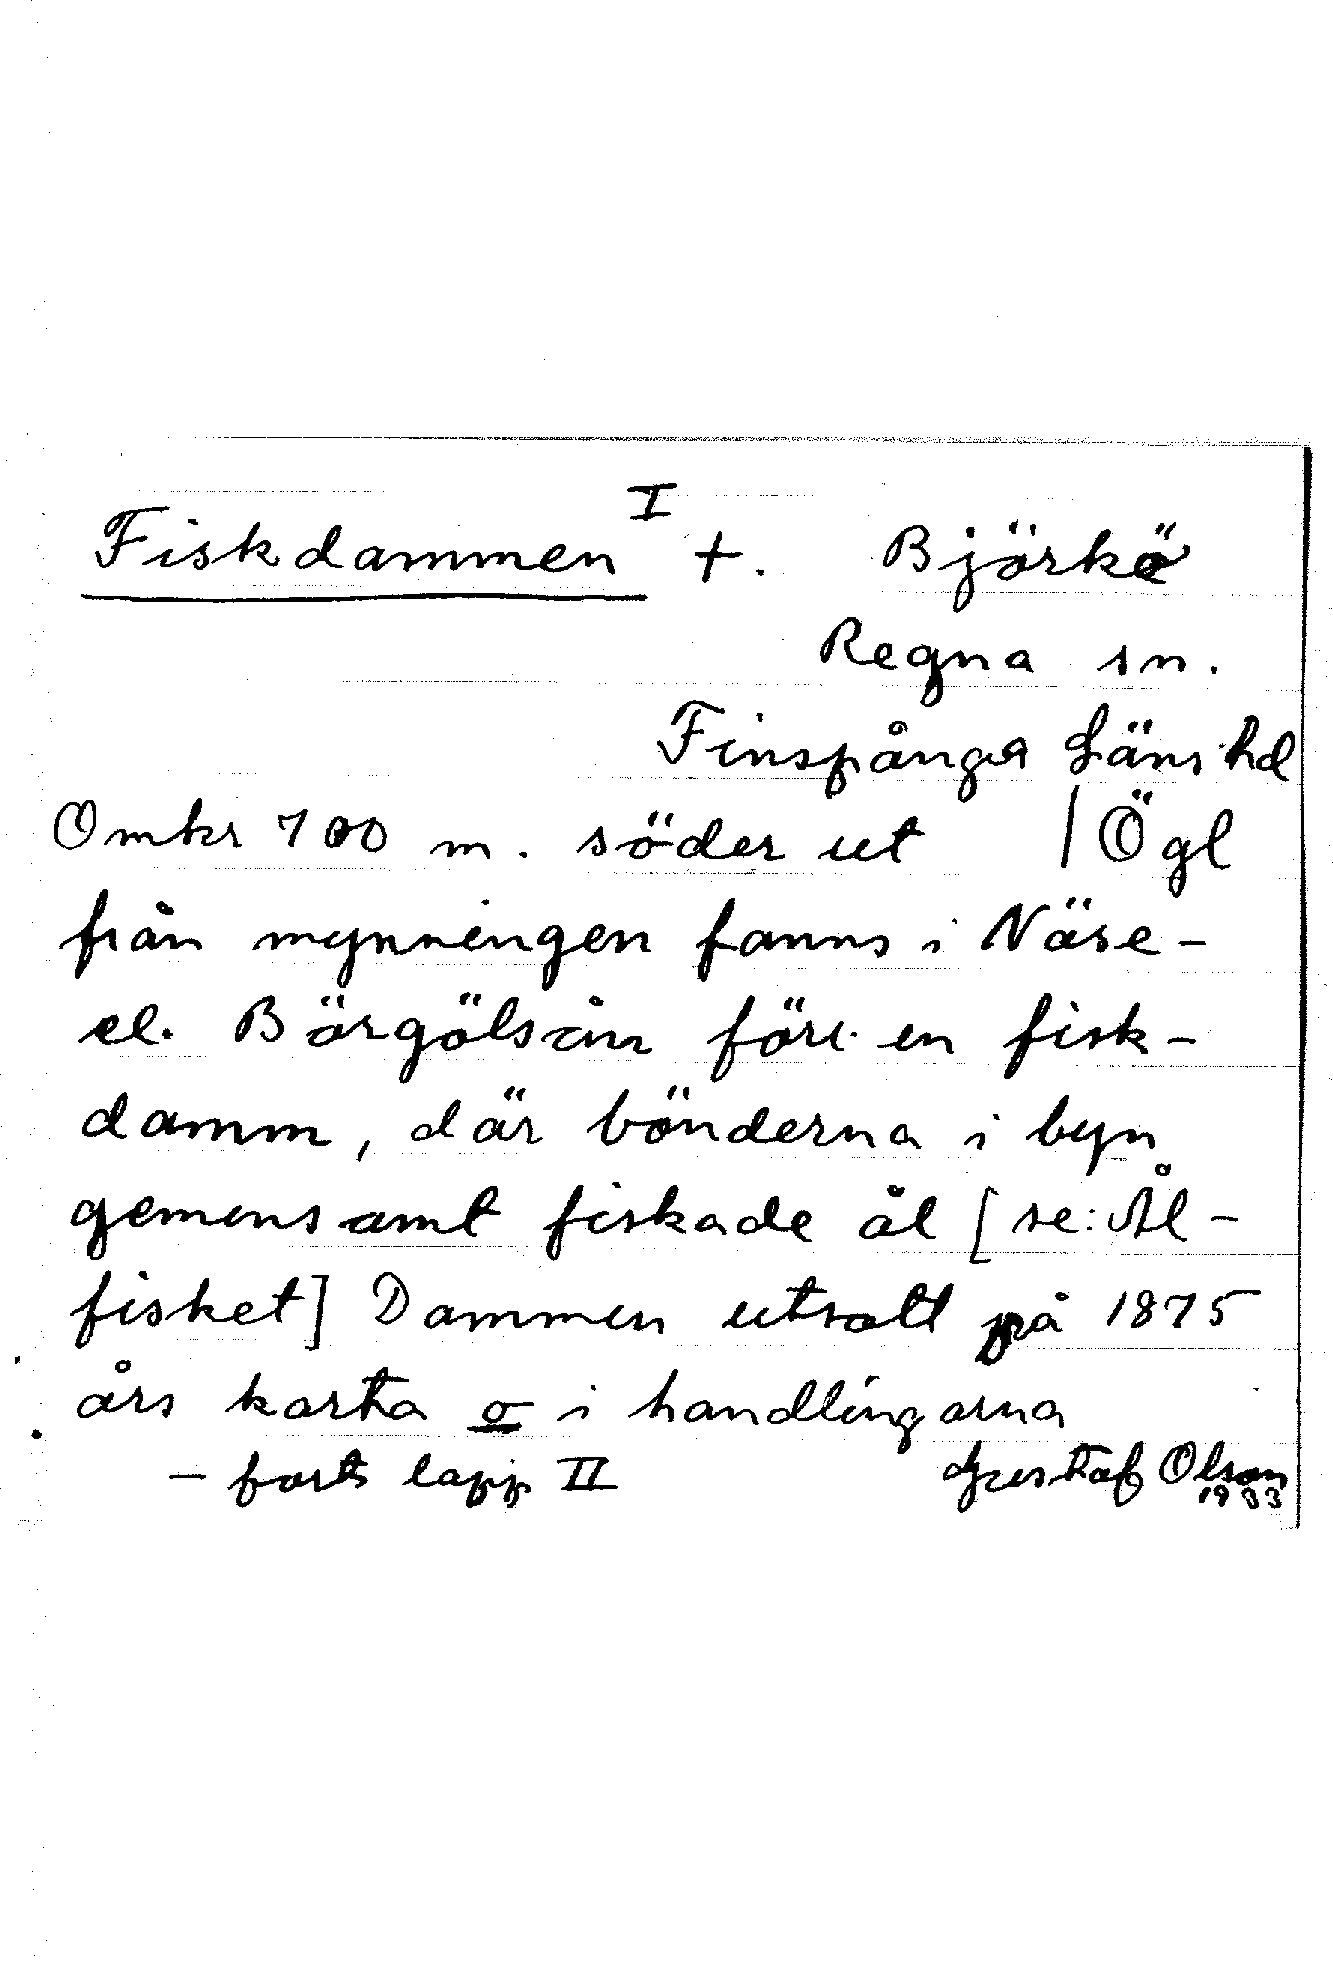 Fiskdammen I +. Björkö
Regna sn.
Finspånga Läns hd
Omkr 700 m. söder ut / Ögl
från mynningen fanns i Näre-
el. Börgölsån förr en fisk-
damm, där bönderna i byn
gemensamt fiskade ål [se: Ål-
fisket] Dammen utsatt på 1875
års karta o i handlingarna
- forts lapp II Gustaf Olson
1933